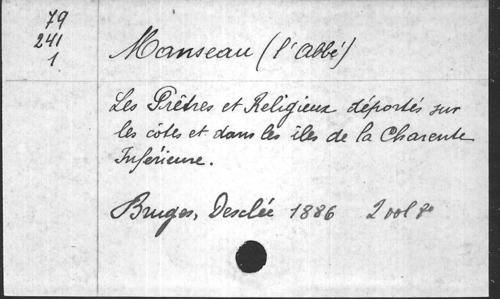 79
241
1
Manseau (l'abbé)
Les Prêtres et Religieux déportés sur
les côtes et dans les îles de la Charente
Inférieure.
Bruges, Desclée 1886 2 vol 8°